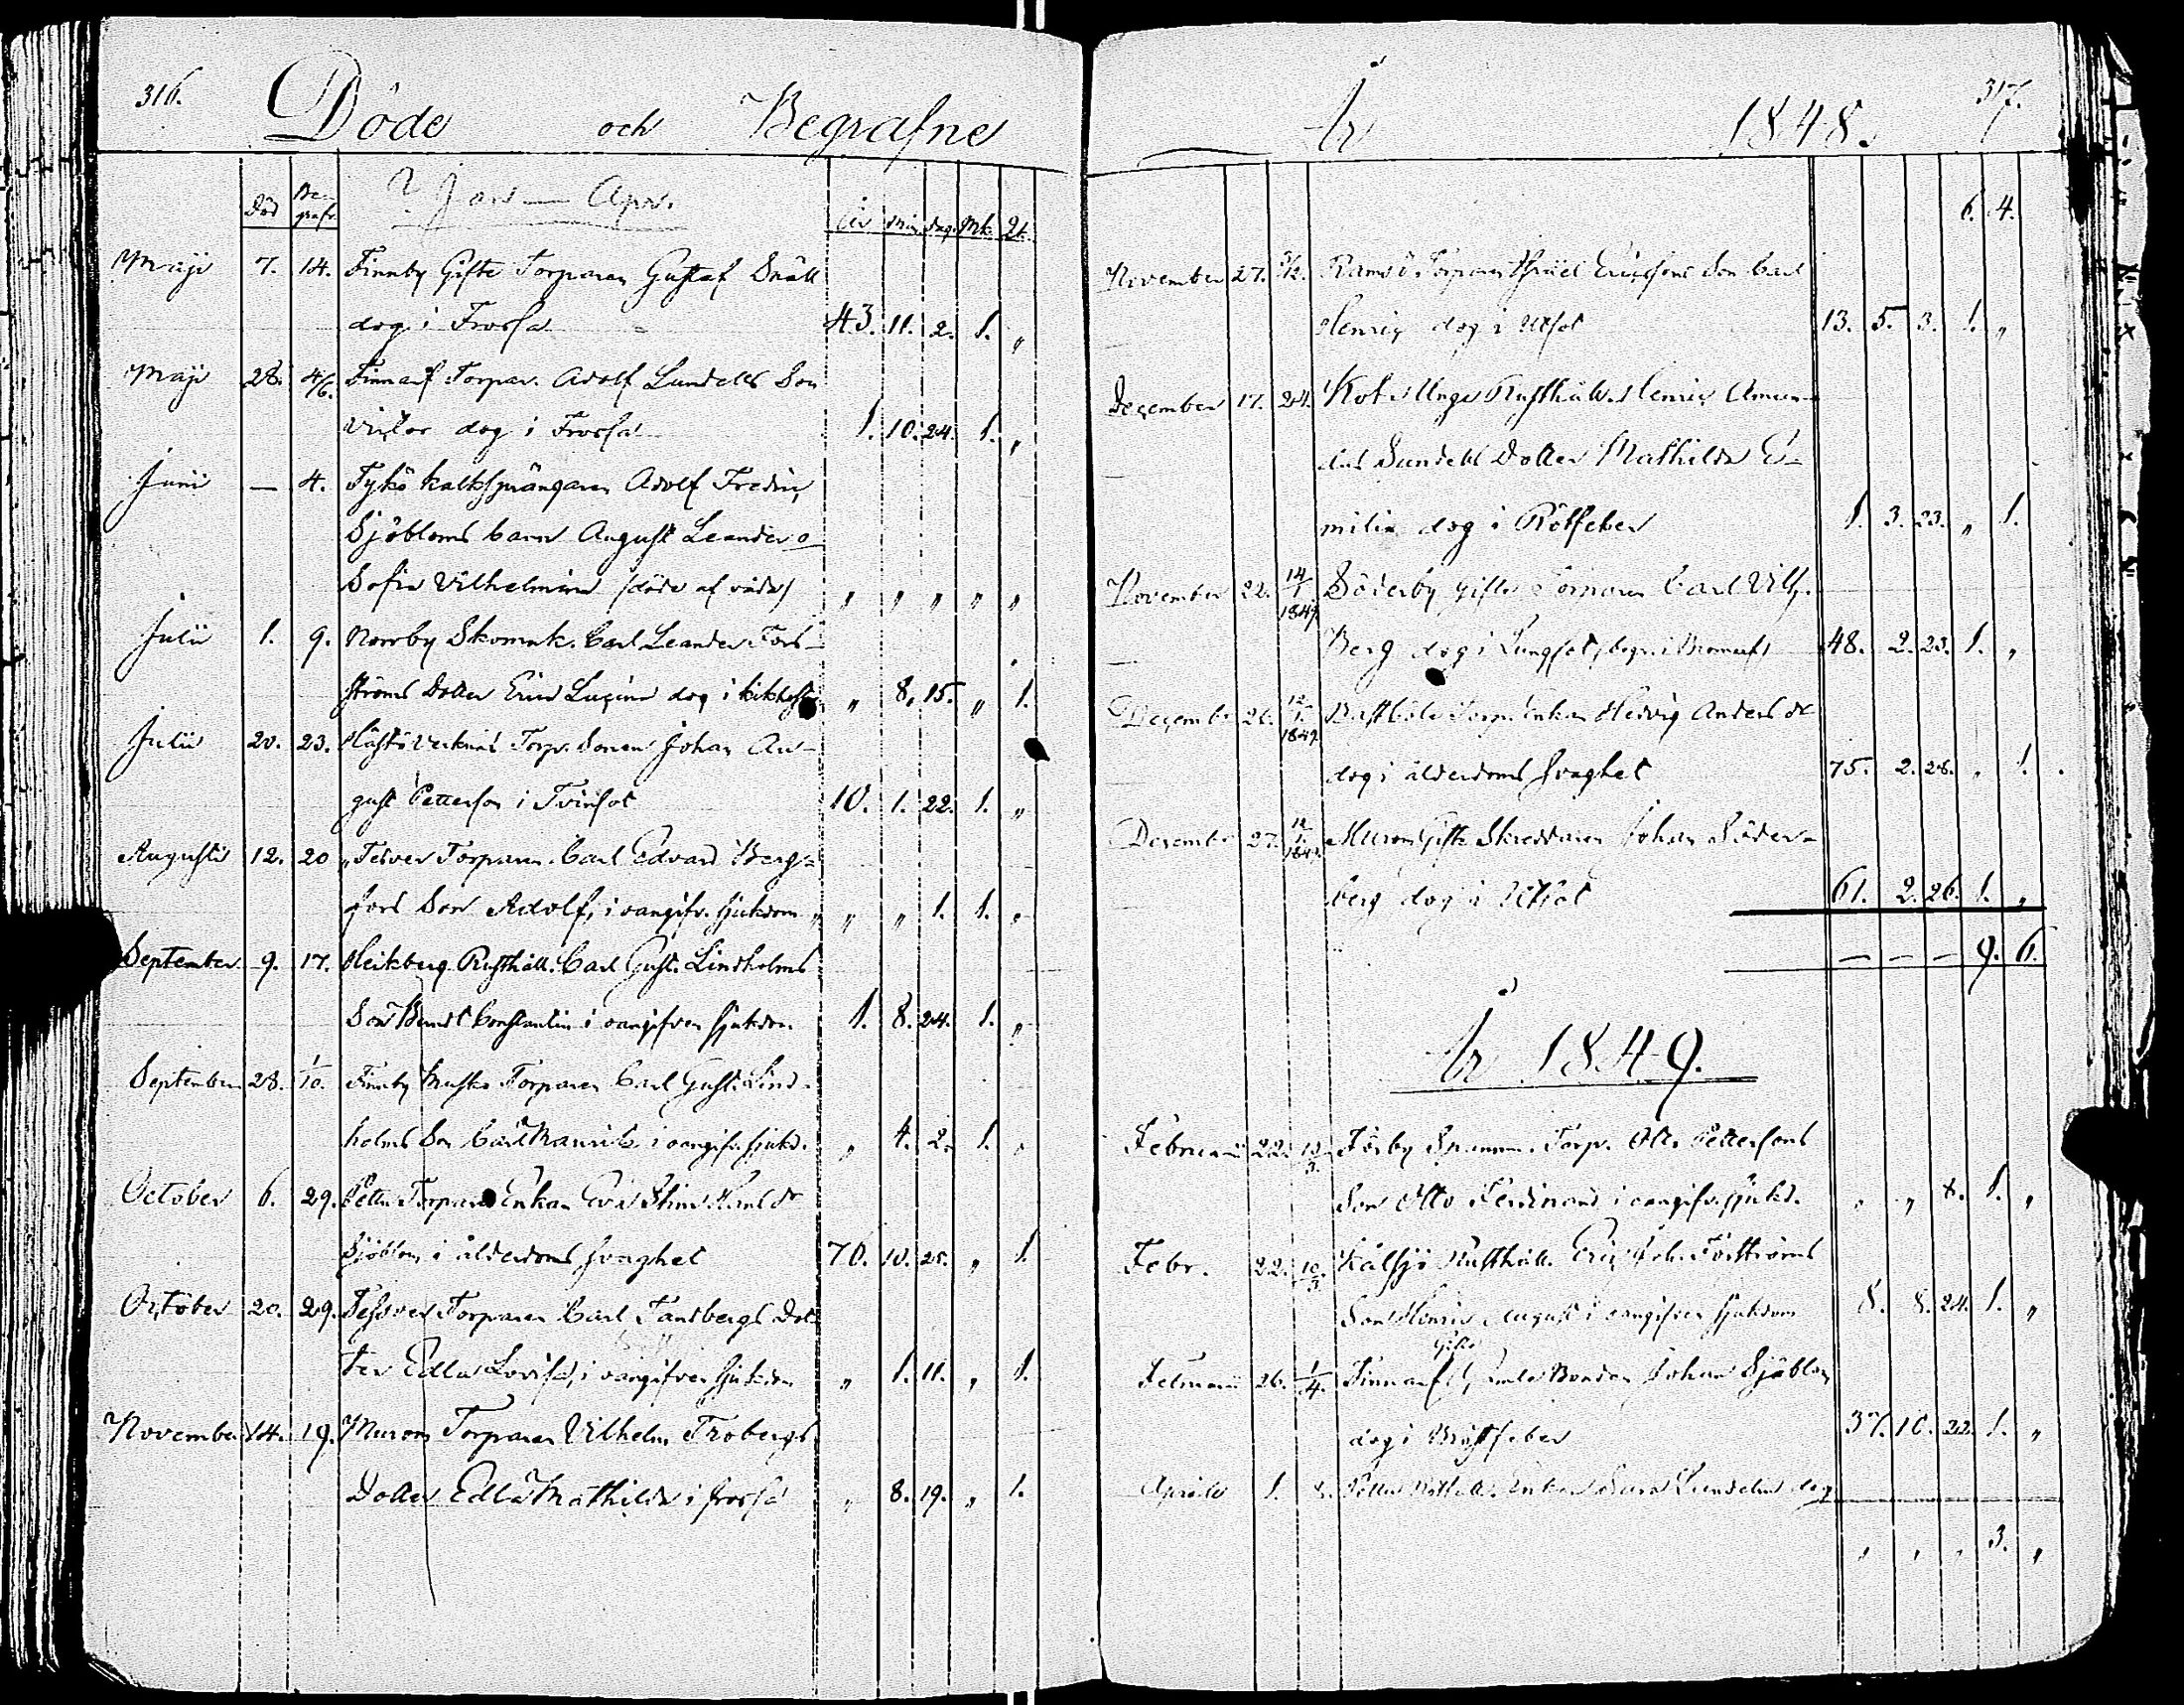 316.
Döde och Begrafne
Död Begrafn. ? Jan — Apr. År Mån. Dag. Mk. Qk.
Maji 7. 14. Finnby Gifte Torparen Gustaf Snäll
dog i Frossa 43. 11. 2. 1. „
Maji 28. 4/6. Finnarf Torpar. Adolf Lundells Son
Victor dog i Frossa 1. 10. 24. 1. „
Junii — 4. Tykö kalksprängaren Adolf Fredric
Sjöbloms barn August Leander o
Sofia Vilhelmina (döde af våda) „ „ „ „ „
Julii 1. 9. Norrby Skomak. Carl Leander Fors-
ströms Dotter Erica Lucina dog i kikhosta „ 8. 15. „ 1.
Julii 20. 23. Torp. Sonen Johan Au-
gust Petterson i Tvinsot 10. 1. 22. 1. „
Augusti 12. 20 Torparen Carl Edvard Berg-
fors Son Adolf, i oangifv. sjukdom „ „ 1. 1. „
September 9. 17. Heikberg Rusthåll. Carl Gust. Lindholms
Son Berndt Constantin i oangifven sjukdom 1. 8. 24. 1. „
September 28. 1/10. Finnby Torparen Carl Gust. Lind-
holms Son Carl Maurits i oangifv. sjukd. „ 4. 2. 1. „
October 6. 29. Torpare Enkan Eva Stina
Sjöblom i ålderdoms svaghet 76. 10. 25. „ 1.
October 20. 29. Torparen Carl Dot-
ter Edla Lovisa, i oangifven sjukdom „ 1. 11. „ 1.
November 14. 19. Murom Torparen Vilhelm Frobergs
Dotter Edla Mathilda i frossa „ 8. 19. „ 1.
År 1848. 317.
6. 4.
November 27. 3/12. Ramsö Torparen Ericssons Son Carl
Henric dog i Utsot 13. 5. 3. 1. „
December 17. 24. Rusthåll. Henric Aman-
dus Sundells Dotter Mathilda E-
milia dog i Rötfeber 1. 3. 23. „ 1.
November 22. 14/1 1849. Söderby gifte Carl Vilh.
Berg dog i Lungsot (begr. i Bromarf) 48. 2. 23. 1. „
December 26. 12/1. 1849. Bastböle Torp. Enkan Hedvig Anders dr
dog i ålderdoms svaghet 75. 2. 28. „ 1.
December 27. 12/1 1849. Murom Gifte Skreddaren Johan Söder-
berg dog i Utsot 61. 2. 26. 1. „
— — — 9. 6.
År 1849.
Februarii 22. Förby Torp. Pettersons
Son Otto Ferdinand i oangifv. sjukd. „ „ 8. 1. „
Febr. 22. Kålsjö Rusthåll. Eric Joh. Forsströms
Son Henric August i oangifven sjukdom 8. 8. 24. 1. „
Gifte
Februarii 26. 1/4. Finnarf Bonden Johan Sjöblom
dog i Bröstfeber 37. 10. 22. 1. „
Aprilis 1. 8. Enkan dog
„ „ „ 3. „